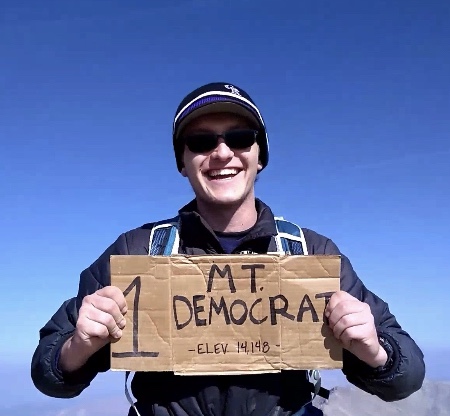 1
MT.
DEMOCRAT
-ELEV 14,148-